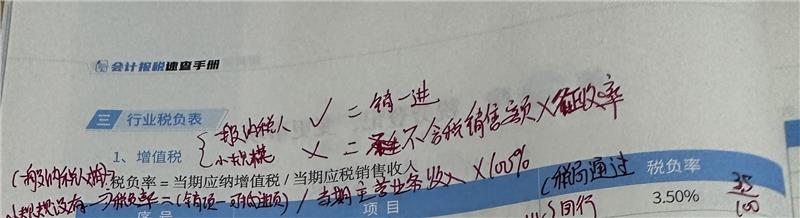 会计报税速查手册
三 行业税负表
一般纳税人 ✓ = 销-进
1、增值税
小规模 × = 不含税销售额×征收率
(一般纳税人用)
税负率 = 当期应纳增值税 / 当期应税销售收入
小规模没有→税负率=(销项-可抵进项)/当期主营业务收入×100%
(税局通过
同行
序号 项目 税负率
3.50% 3.5/100